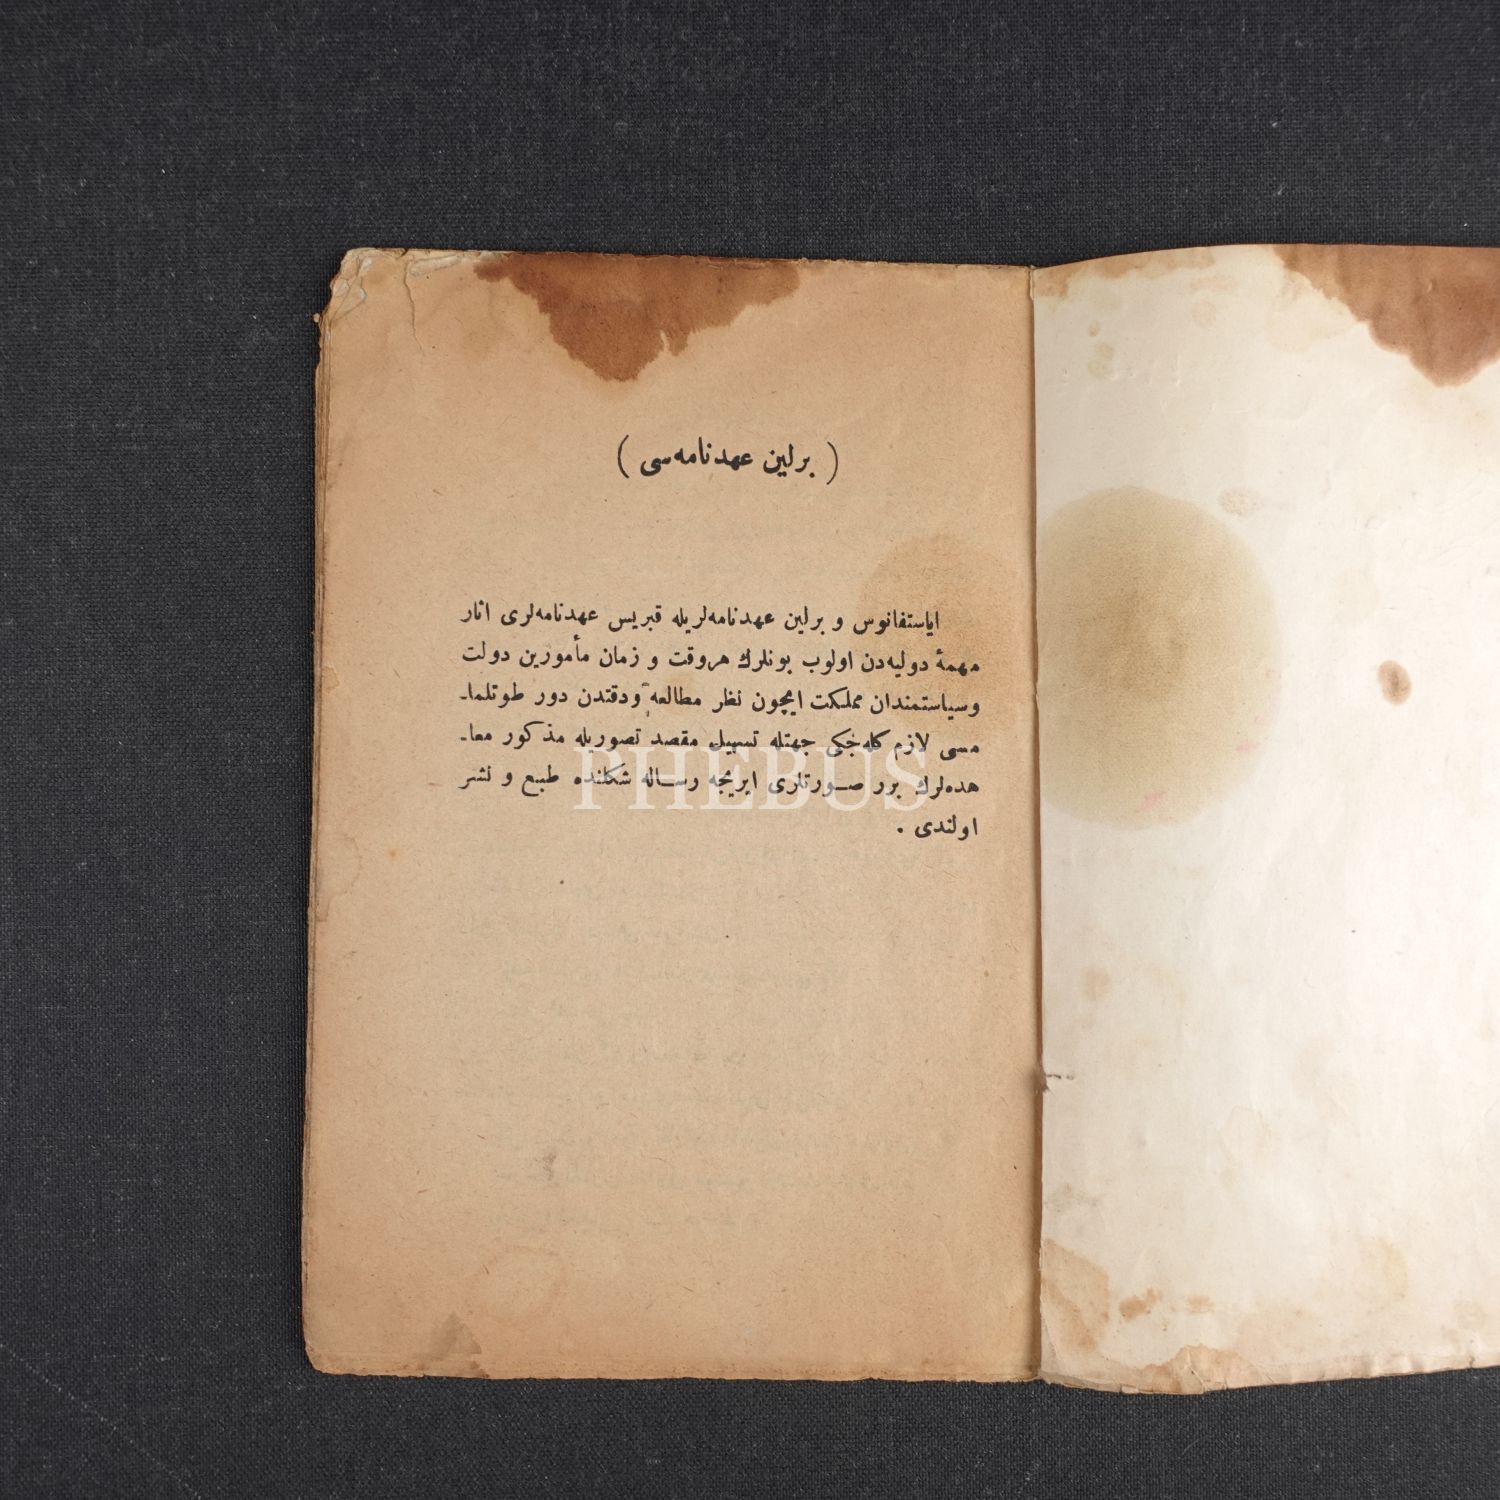 ( برلين عهدنامه‌سى )
اياستفانوس و برلين عهدنامه‌لريله قبريس عهدنامه‌لرى اثار
مهمهٔ دوليه‌دن اولوب بونلرك هروقت و زمان مأمورين دولت
وسياستمندان مملكت ايچون نظر مطالعه ودقتدن دور طوتلما-
مسى لازم كله‌جكى جهتله تسهيل مقصد تصوريله مذكور معا-
هده‌لرك برر صورتلرى ايريجه رساله شكلنده طبع و نشر
اولندى .
PHEBUS